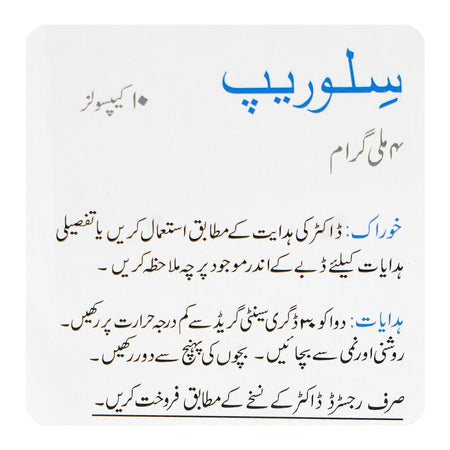 سِلوریپ
۱۰ کیپسولز
۴ ملی گرام
خوراک: ڈاکٹر کی ہدایت کے مطابق استعمال کریں یا تفصیلی
ہدایات کیلئے ڈبے کے اندر موجود پرچہ ملاحظہ کریں ۔
ہدایات: دوا کو ۳۰ ڈگری سینٹی گریڈ سے کم درجہ حرارت پر رکھیں۔
روشنی اور نمی سے بچائیں ۔ بچوں کی پہنچ سے دور رکھیں ۔
صرف رجسٹرڈ ڈاکٹر کے نسخے کے مطابق فروخت کریں۔